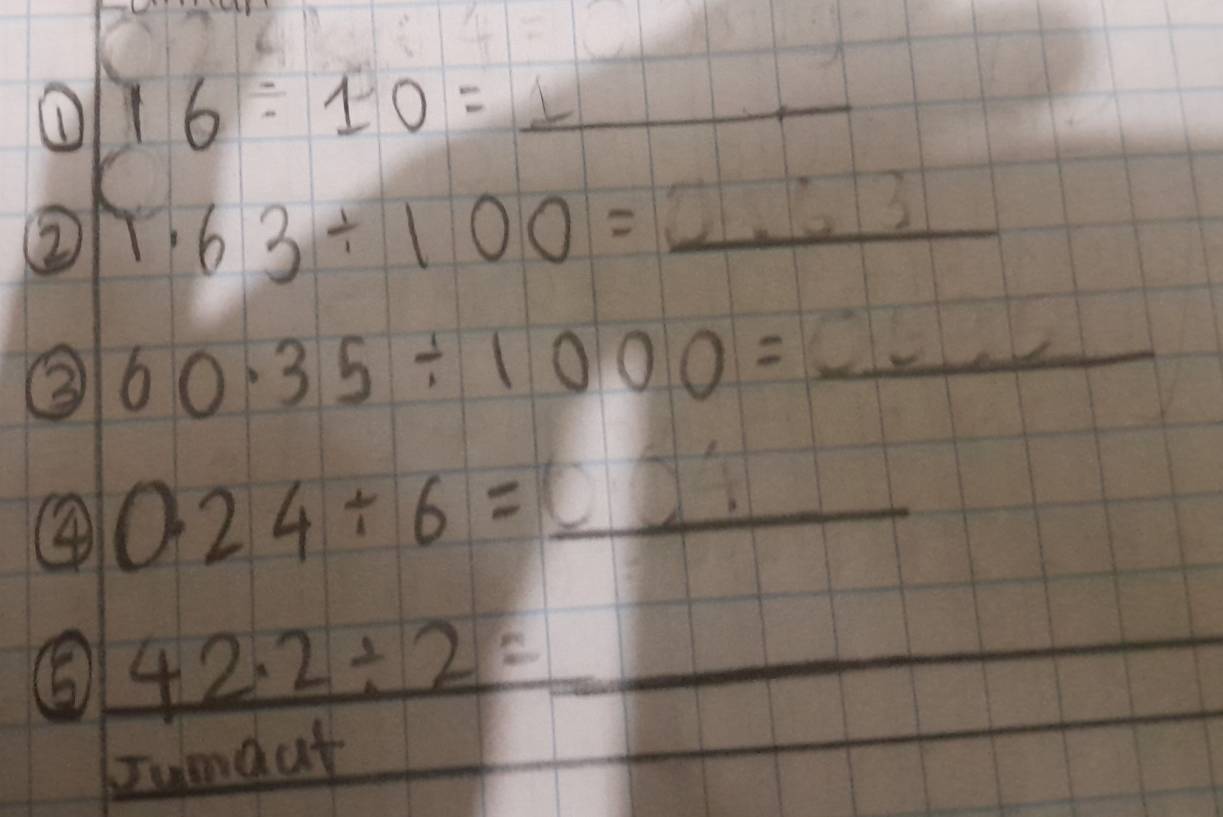 ① 16 ÷ 10 = 1
② 1.63 ÷ 100 =
③ 60.35 ÷ 1000 =
④ 0.24 ÷ 6 = 0.04
⑤ 42.2 ÷ 2 =
Jumaat